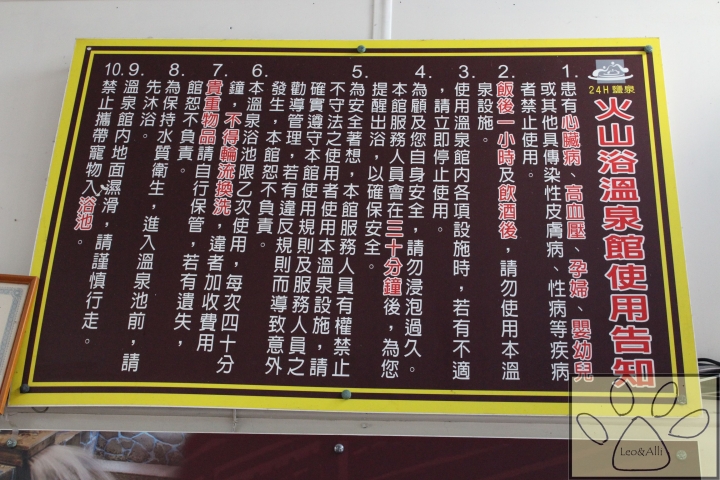 24H 鹽泉
火山浴溫泉館使用告知
1. 患有心臟病、高血壓、孕婦、嬰幼兒
或其他具傳染性皮膚病、性病等疾病
者禁止使用。
2. 飯後一小時及飲酒後，請勿使用本溫
泉設施。
3. 使用溫泉館內各項設施時，若有不適
，請立即停止使用。
4. 為顧及您自身安全，請勿浸泡過久。
本館服務人員會在三十分鐘後，為您
提醒出浴，以確保安全。
5. 為安全著想，本館服務人員有權禁止
不守法之使用者使用本溫泉設施，請
確實遵守本館使用規則及服務人員之
勸導管理，若有違反規則而導致意外
發生，本館恕不負責。
6. 本溫泉浴池限乙次使用，每次四十分
鐘，不得輪流換洗，違者加收費用
7. 貴重物品請自行保管，若有遺失，
館恕不負責。
8. 為保持水質衛生，進入溫泉池前，請
先沐浴。
9. 溫泉館內地面濕滑，請謹慎行走。
10. 禁止攜帶寵物入浴池。
Leo&Alli